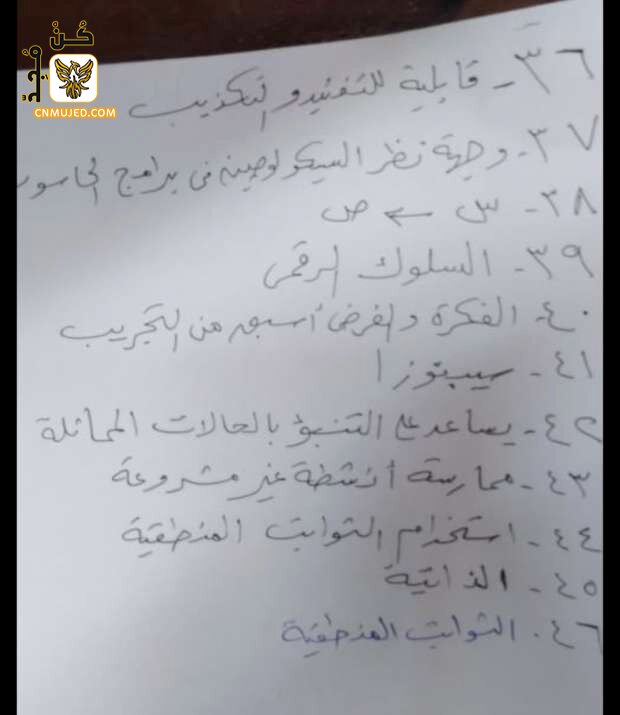 كُنْ مُجِدّ
CNMUJED.COM
٣٦- قابلية للتفنيد و التكذيب
٣٧- وجهة نظر السيكولوجية في برامج الحاسوب
٣٨- س ← ص
٣٩- السلوك الرقمى
٤٠- الفكرة والفرض أسبق من التجريب
٤١- سيبتوزا
٤٢- يساعد على التنبؤ بالحالات المماثلة
٤٣- ممارسة أنشطة غير مشروعة
٤٤- استخدام الثوابت المنطقية
٤٥- الذاتية
٤٦- الثوابت المنطقية